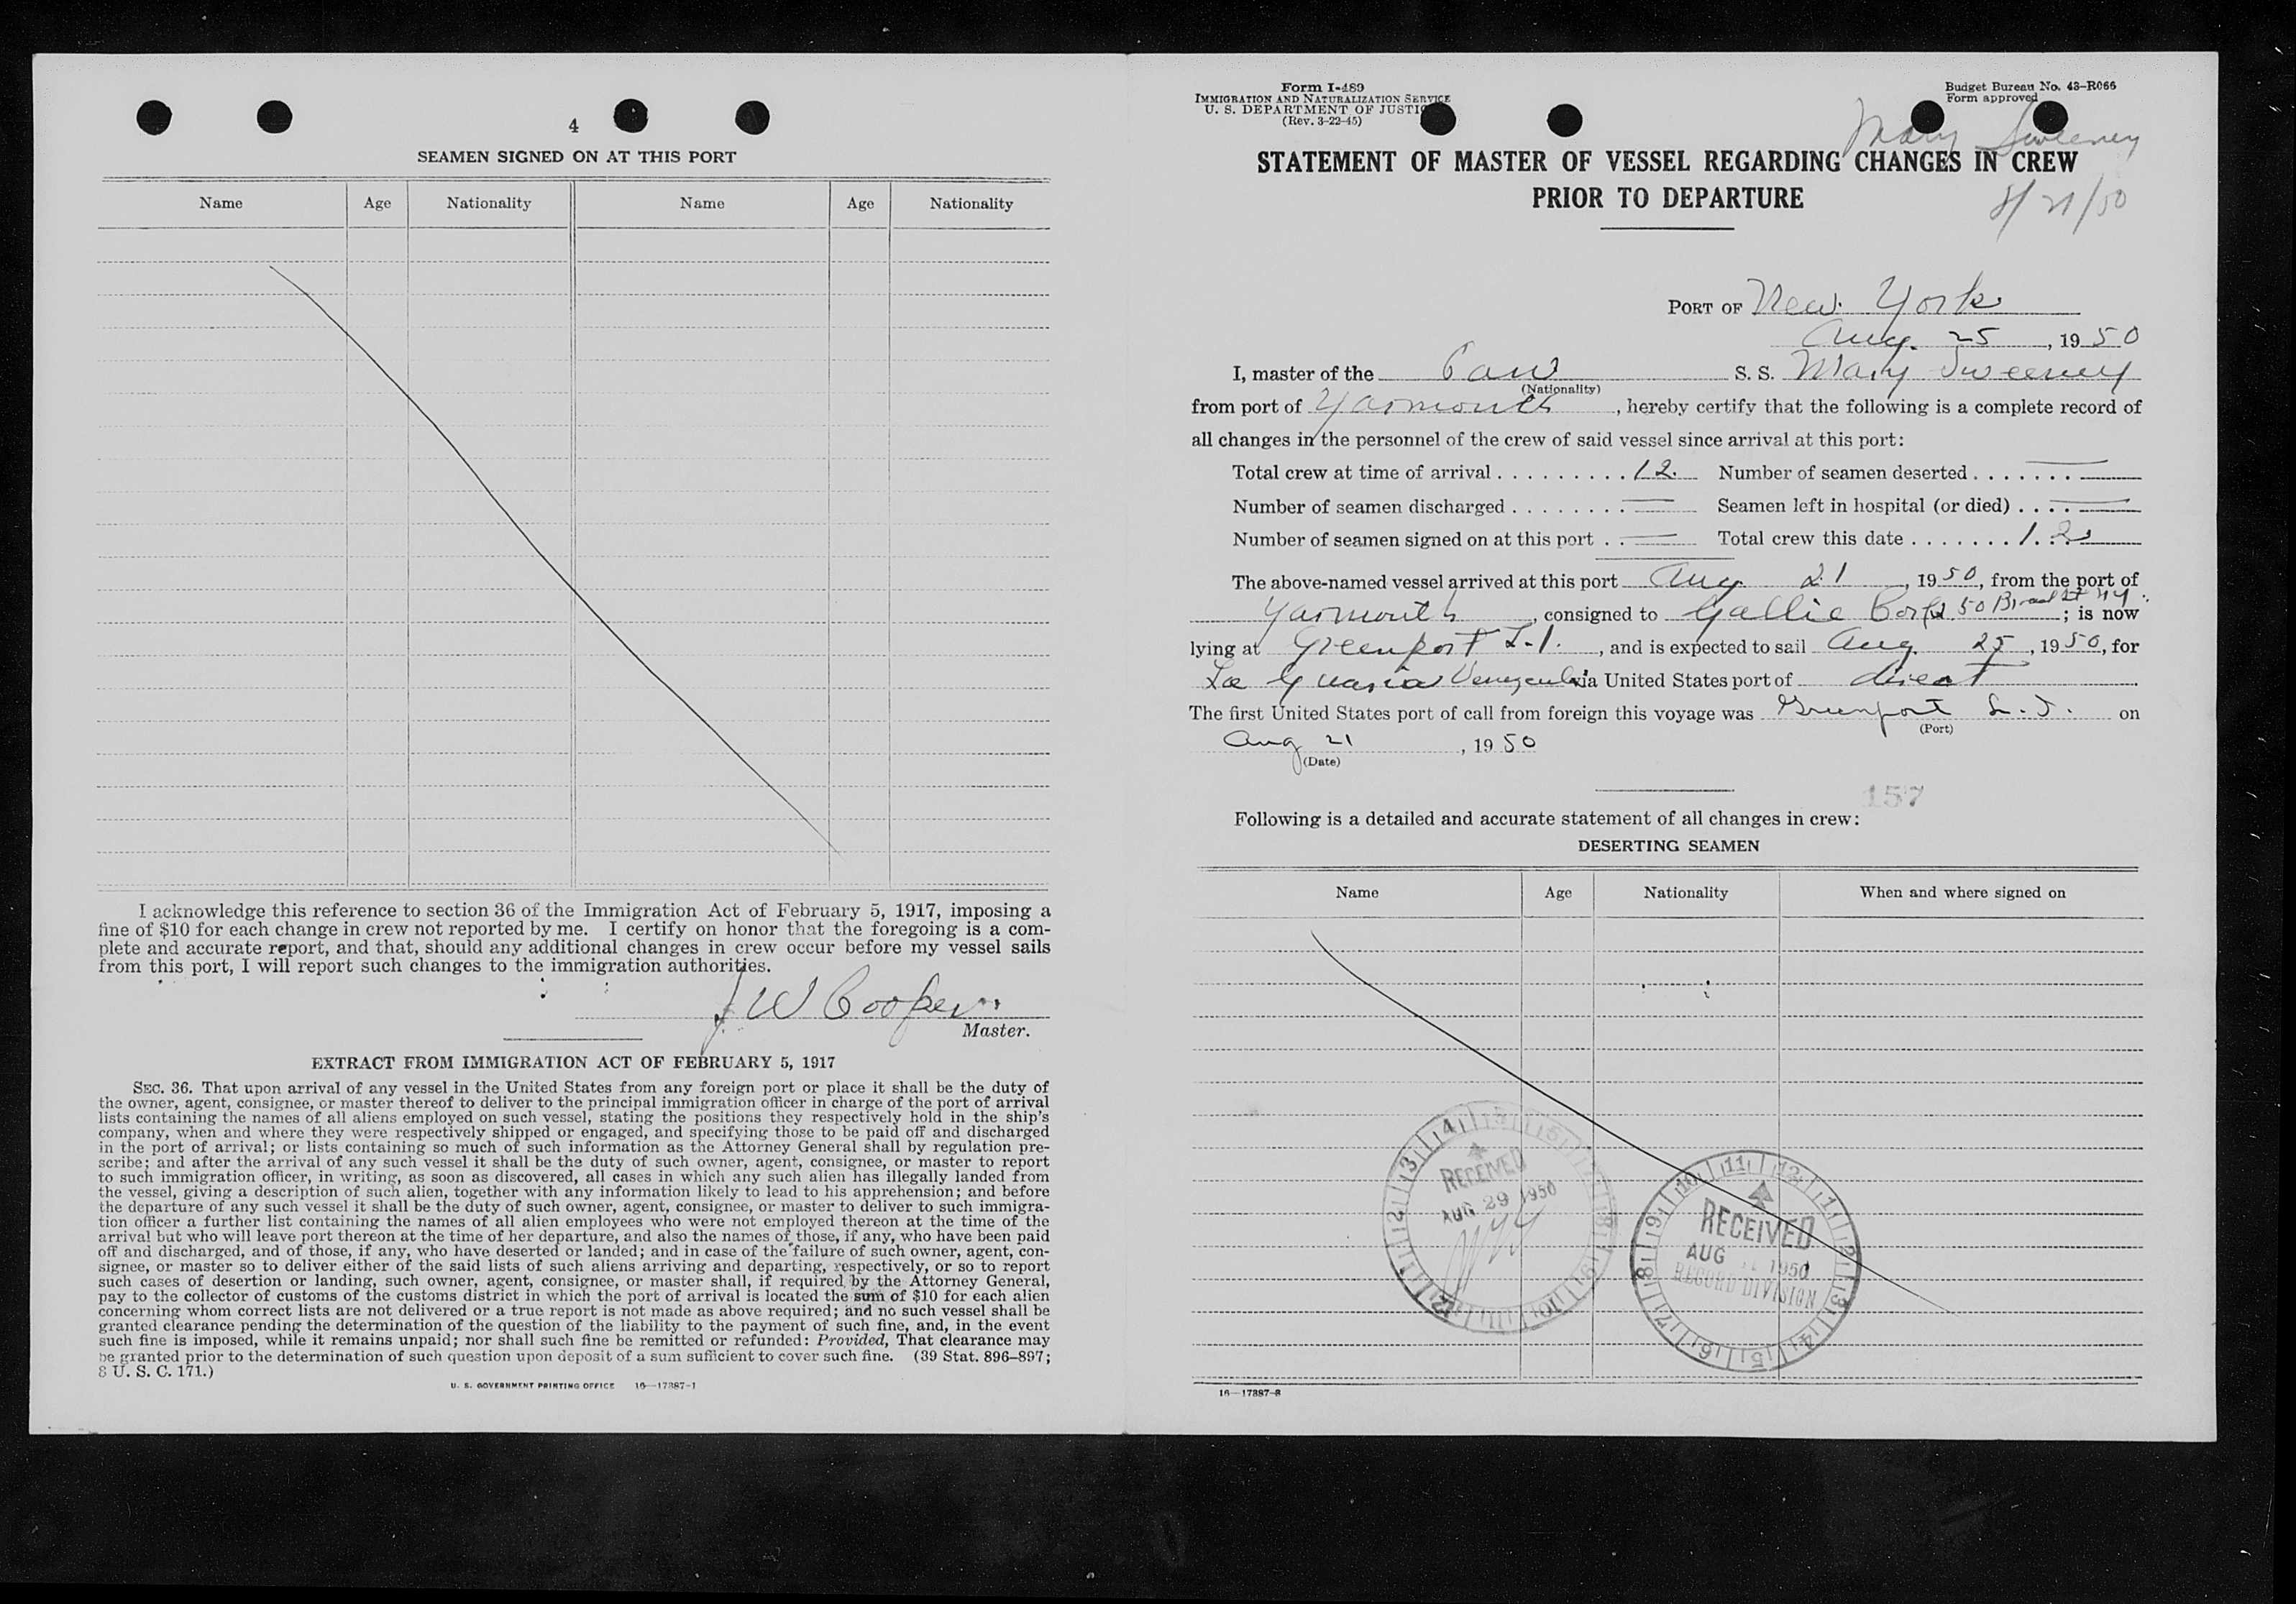 4
SEAMEN SIGNED ON AT THIS PORT
Name Age Nationality Name Age Nationality
I acknowledge this reference to section 36 of the Immigration Act of February 5, 1917, imposing a
fine of $10 for each change in crew not reported by me. I certify on honor that the foregoing is a com-
plete and accurate report, and that, should any additional changes in crew occur before my vessel sails
from this port, I will report such changes to the immigration authorities.
J W Cooper
Master.
EXTRACT FROM IMMIGRATION ACT OF FEBRUARY 5, 1917
SEC. 36. That upon arrival of any vessel in the United States from any foreign port or place it shall be the duty of
the owner, agent, consignee, or master thereof to deliver to the principal immigration officer in charge of the port of arrival
lists containing the names of all aliens employed on such vessel, stating the positions they respectively hold in the ship's
company, when and where they were respectively shipped or engaged, and specifying those to be paid off and discharged
in the port of arrival; or lists containing so much of such information as the Attorney General shall by regulation pre-
scribe; and after the arrival of any such vessel it shall be the duty of such owner, agent, consignee, or master to report
to such immigration officer, in writing, as soon as discovered, all cases in which any such alien has illegally landed from
the vessel, giving a description of such alien, together with any information likely to lead to his apprehension; and before
the departure of any such vessel it shall be the duty of such owner, agent, consignee, or master to deliver to such immigra-
tion officer a further list containing the names of all alien employees who were not employed thereon at the time of the
arrival but who will leave port thereon at the time of her departure, and also the names of those, if any, who have been paid
off and discharged, and of those, if any, who have deserted or landed; and in case of the failure of such owner, agent, con-
signee, or master so to deliver either of the said lists of such aliens arriving and departing, respectively, or so to report
such cases of desertion or landing, such owner, agent, consignee, or master shall, if required by the Attorney General,
pay to the collector of customs of the customs district in which the port of arrival is located the sum of $10 for each alien
concerning whom correct lists are not delivered or a true report is not made as above required; and no such vessel shall be
granted clearance pending the determination of the question of the liability to the payment of such fine, and, in the event
such fine is imposed, while it remains unpaid; nor shall such fine be remitted or refunded: Provided, That clearance may
be granted prior to the determination of such question upon deposit of a sum sufficient to cover such fine. (39 Stat. 896-897;
8 U. S. C. 171.)
U. S. GOVERNMENT PRINTING OFFICE 16—17887-1
Form I-489
IMMIGRATION AND NATURALIZATION SERVICE
U. S. DEPARTMENT OF JUSTIC
(Rev. 3-22-45)
Budget Bureau No. 43-R066
Form approved
Mary Sweeney
STATEMENT OF MASTER OF VESSEL REGARDING CHANGES IN CREW
PRIOR TO DEPARTURE
8/21/50
PORT OF New York
Aug. 25, 1950
I, master of the Can S. S. Mary Sweeney
(Nationality)
from port of Yarmouth, hereby certify that the following is a complete record of
all changes in the personnel of the crew of said vessel since arrival at this port:
Total crew at time of arrival . . . . . . . . . . 12 Number of seamen deserted . . . . . . . —
Number of seamen discharged . . . . . . . . — Seamen left in hospital (or died) . . . . —
Number of seamen signed on at this port . . — Total crew this date . . . . . . . 12
The above-named vessel arrived at this port Aug 21, 1950, from the port of
Yarmouth, consigned to Gallie Corp. 50 Broad St NY; is now
lying at Greenport L.I., and is expected to sail Aug. 25, 1950, for
La Guaria Venezuela via United States port of direct
The first United States port of call from foreign this voyage was Greenport L.I. on
(Port)
Aug 21, 1950
(Date)
157
Following is a detailed and accurate statement of all changes in crew:
DESERTING SEAMEN
Name Age Nationality When and where signed on
RECEIVED
AUG 29 1950
RECEIVED
AUG 1950
RECORD DIVISION
16—17887-3